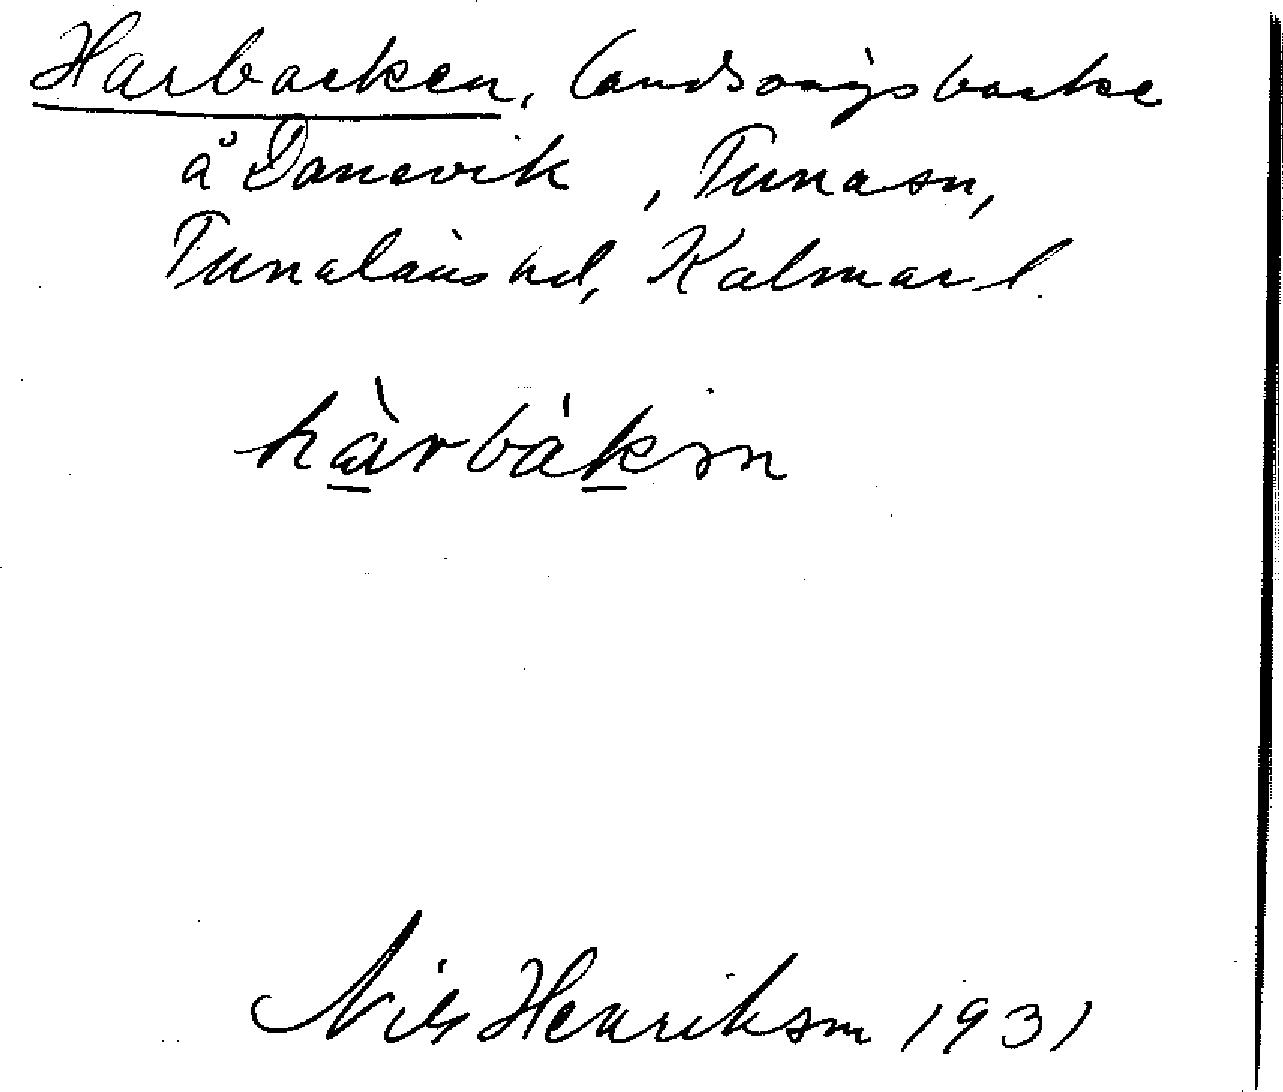 Harbacken, landsvägsbacke
å Danevik, Tuna sn,
Tunaläns hd, Kalmar l.
hàrbákɘn
Nils Henrikson 1931